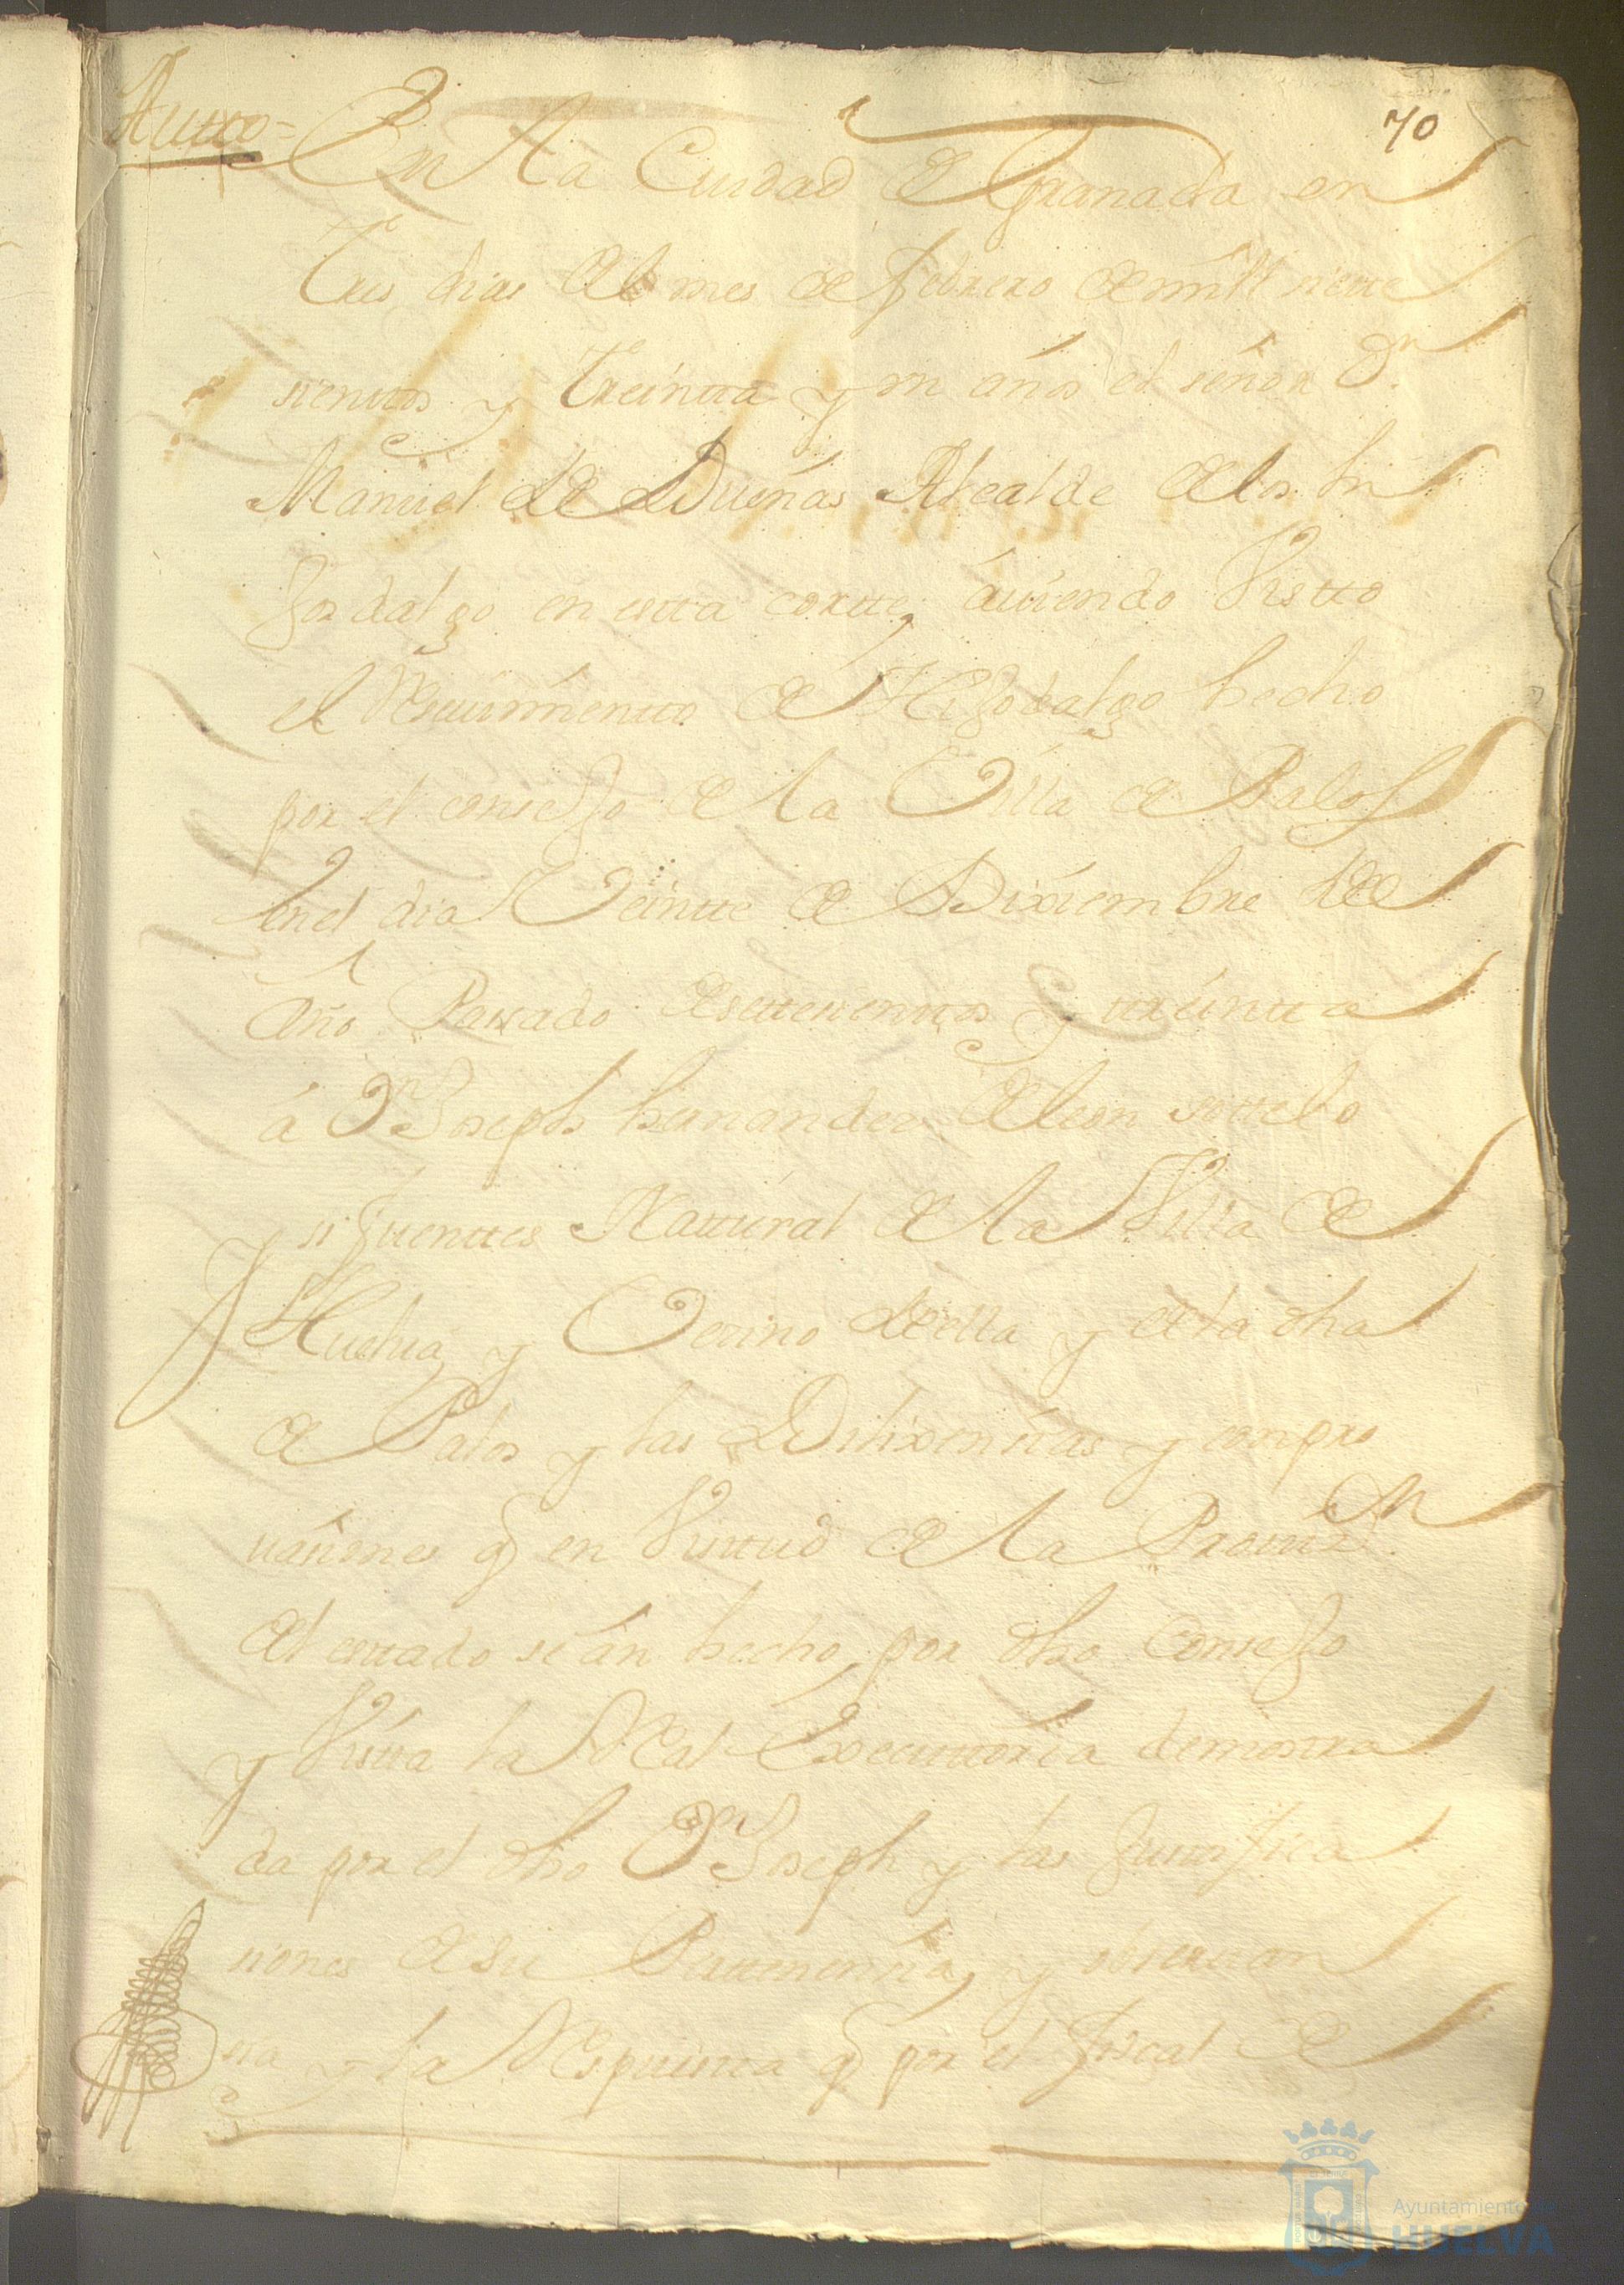 70
Autto =
En la Ciudad de Granada en
tres dias del mes de febrero de mill siette
sienttos y treintta y un años el señor Dn
Manuel de Dueñas Alcalde de los hi
josdalgo en estta cortte, auiendo Vistto
el Resiuimientto de Hijodalgo hecho
por el consejo de la Villa de Palos
en el dia Veintte de Diziembre del
Año Passado de settesienttos y treintta
á Dn Joseph hernandez de leon sottelo
y sifuenttes Natturál de la Villa de
Huelua y Vezino de ella y de la dha
de Palos y las Dilixensias y compro
uásiones q en Virttud de la Prouizn
del esttado se án hecho por dho Consejo
y Vistta la Real Executtória demostra
da por el dho Dn Joseph y las Justtifica
siones de su Perttenensia, y obseruan
sia y la Respuestta q por el fiscal de
Ayuntamiento de
HUELVA